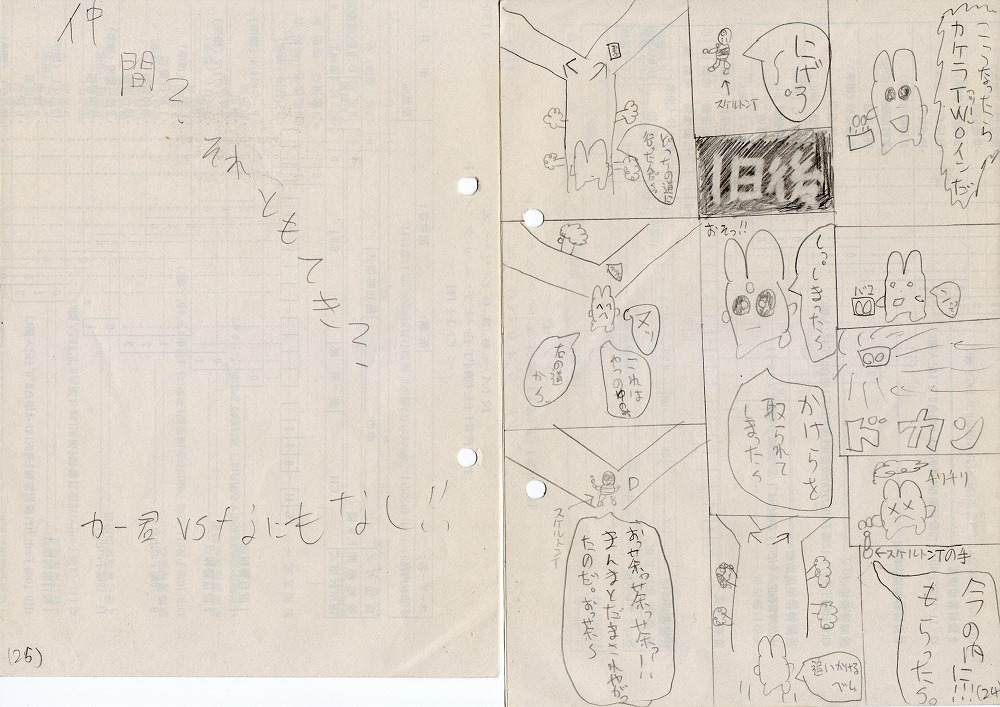 こうなったら
カケラTWOインだ
バコ
ドカン
チリチリ
←スケルトンTの手
今の内に!!!
もらったら。
(24)
にげろ
〜。
スケルトンT
1日後
おそっ!!
しまったら
かけらを
取られて
しまったら
追いかける
べし。
どっちの道
メッ
これは
やつの
右の道
から、
D
スケルトンT
おっ茶っ茶っ茶っ!!
まんまとだまされやがっ
たのだ。おっ茶〜
仲
間?
それともてき??
カー君 vs なにもなし!!
(25)